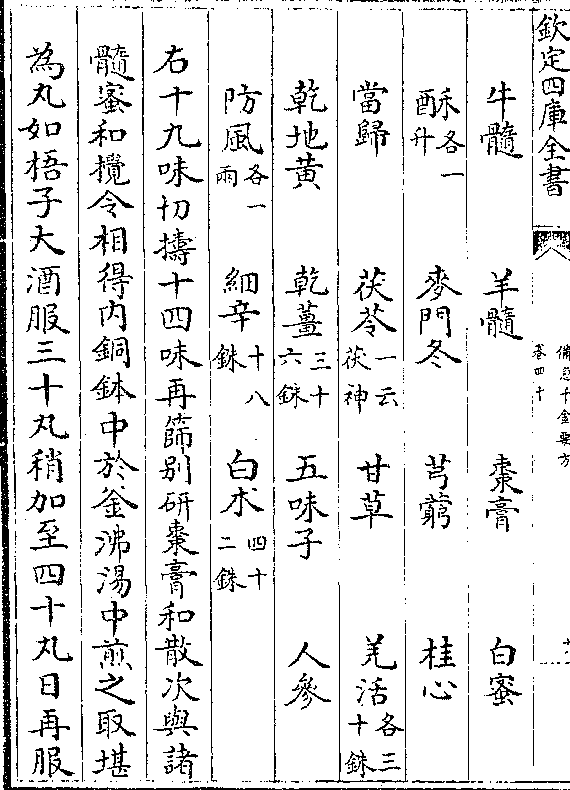 欽定四庫全書
備急千金要方
卷四十
牛髓 羊髓 棗膏 白蜜
酥各一升 麥門冬 芎藭 桂心
當歸 茯苓一云茯神 甘草 羌活各三十銖
乾地黃 乾薑三十六銖 五味子 人參
防風各一兩 細辛十八銖 白朮四十二銖
右十九味切擣十四味再篩别研棗膏和散次與諸
髓蜜和攪令相得内銅鉢中於釜沸湯中煎之取堪
為丸如梧子大酒服三十丸稍加至四十丸日再服